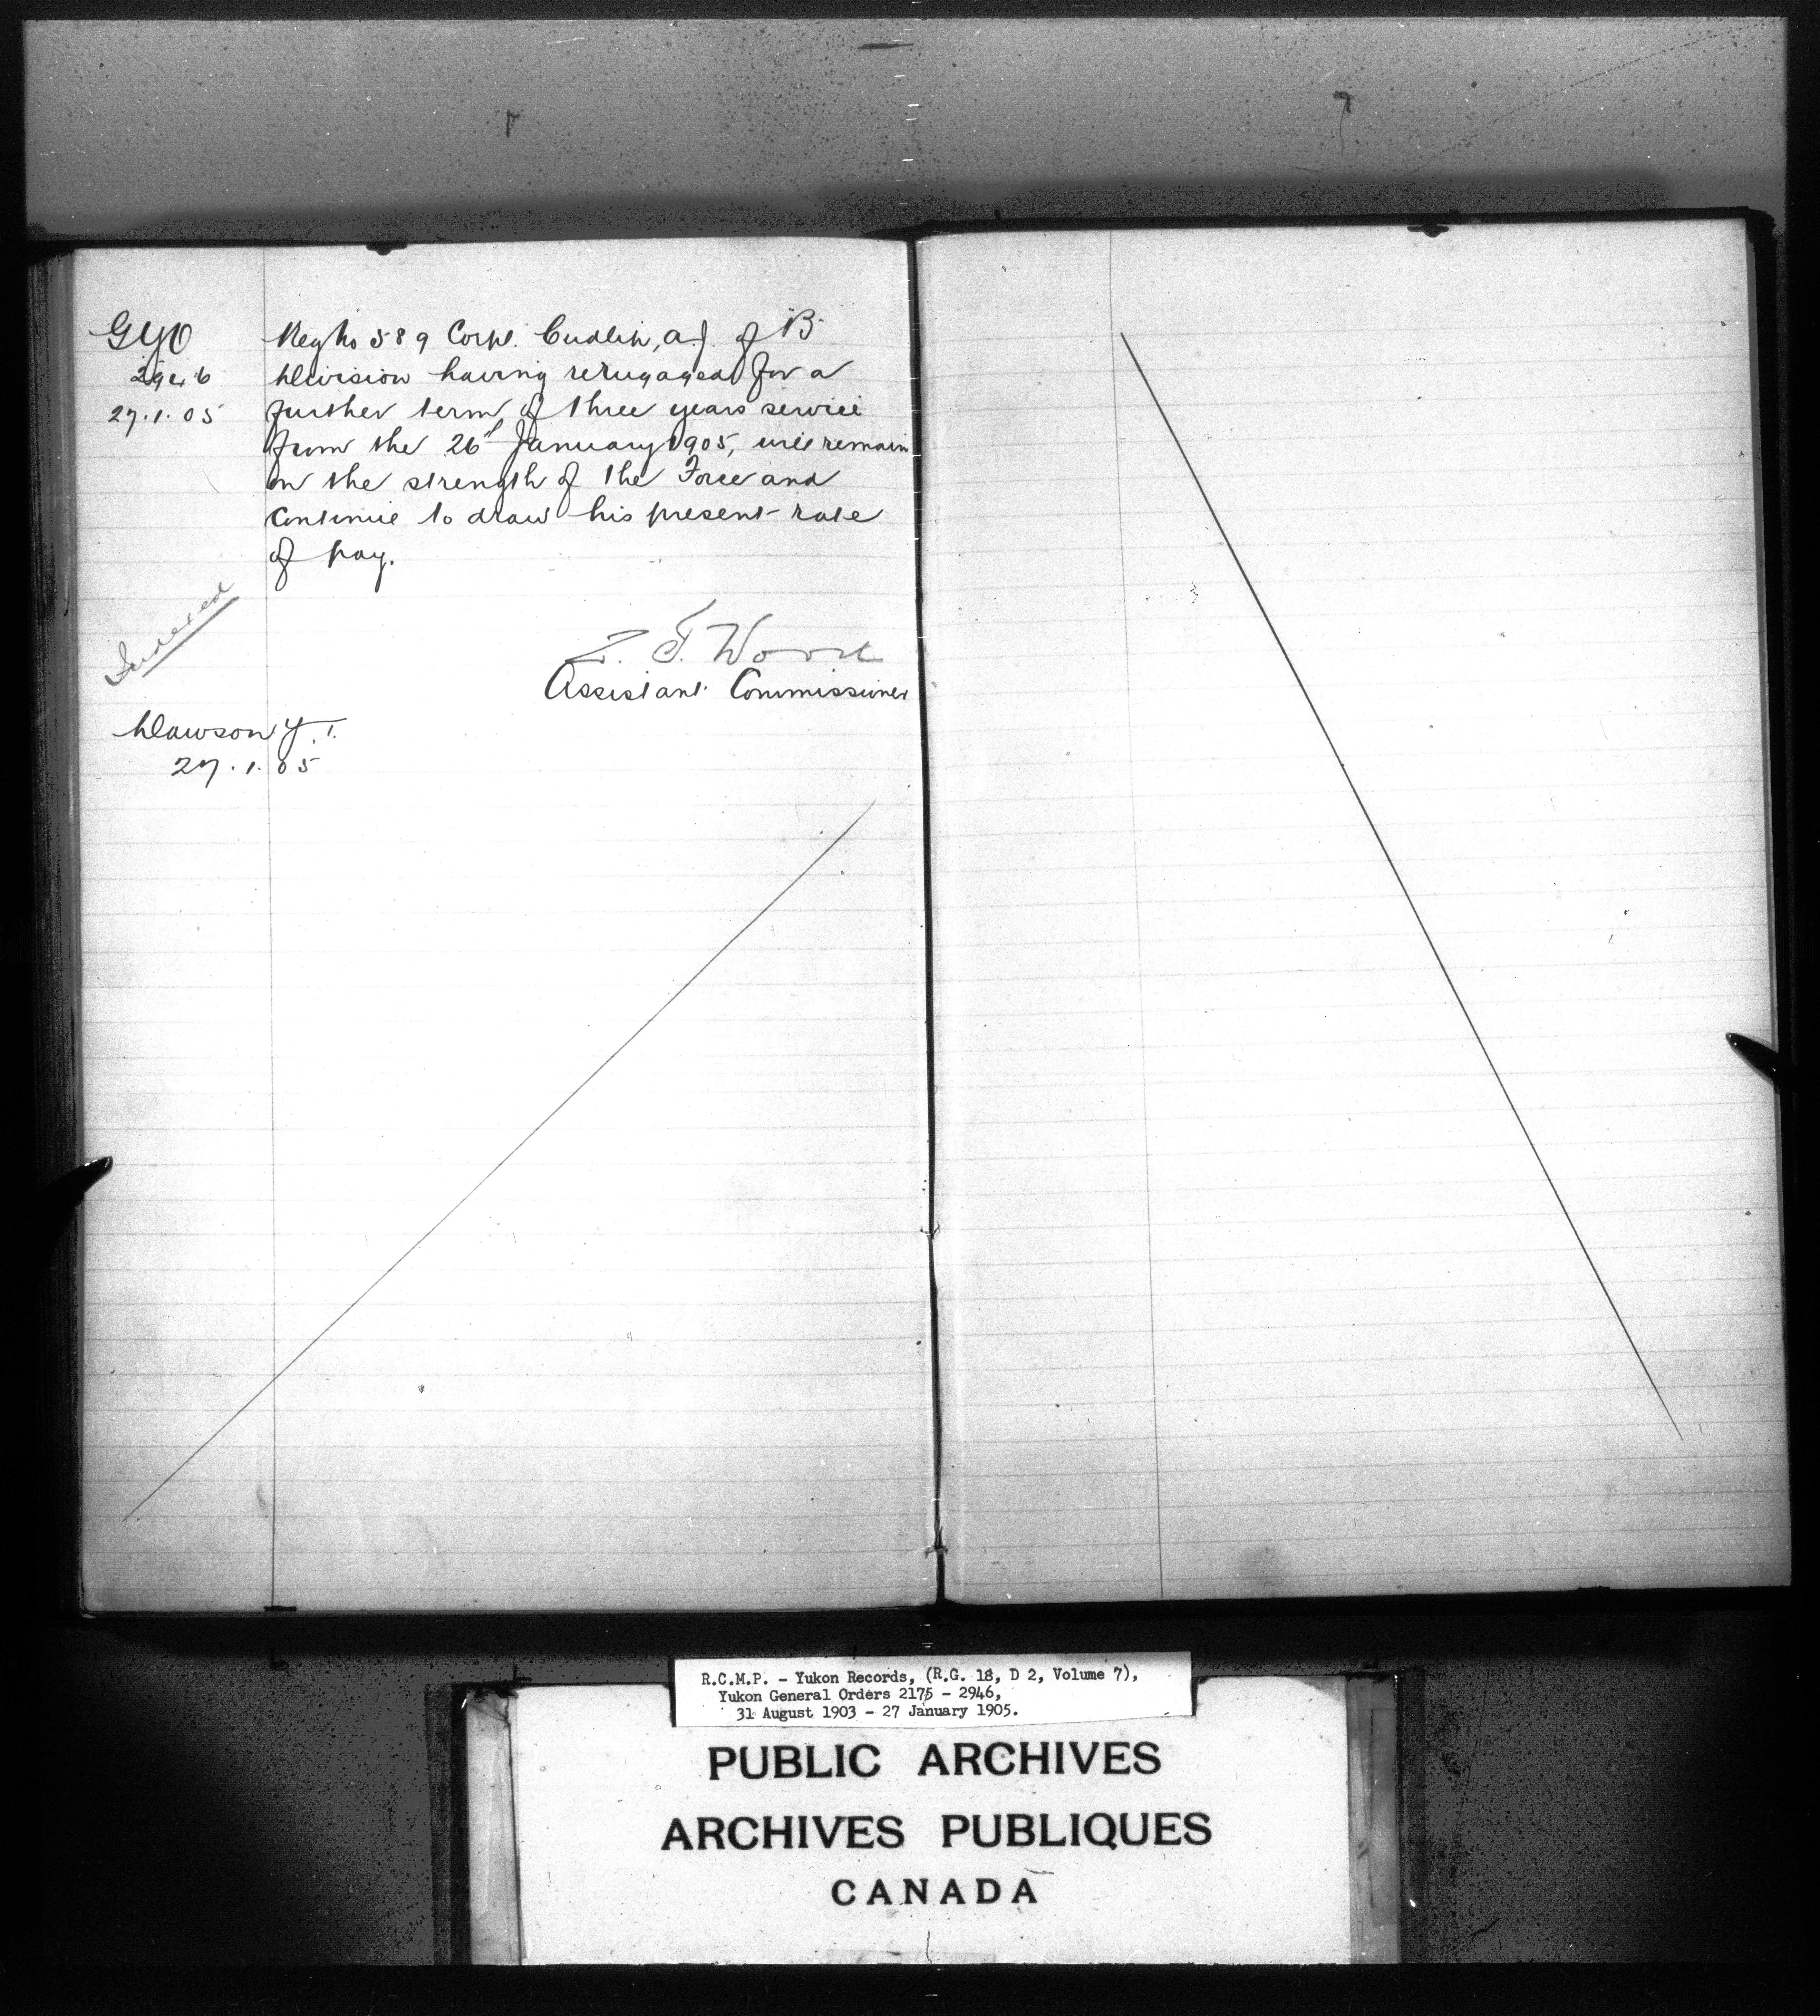 GYO
2946
27.1.05
Reg No 589 Corpl. Cudlip, A.J. of "B"
Division having reengaged for a
further term of three years service
from the 26th January 1905, will remain
on the strength of the Force and
continue to draw his present rate
of pay.
Indexed
Z. T. Wood
Assistant Commissioner
Dawson Y.T.
27.1.05
R.C.M.P. - Yukon Records, (R.G. 18, D 2, Volume 7),
Yukon General Orders 2175 - 2946,
31 August 1903 - 27 January 1905.
PUBLIC ARCHIVES
ARCHIVES PUBLIQUES
CANADA